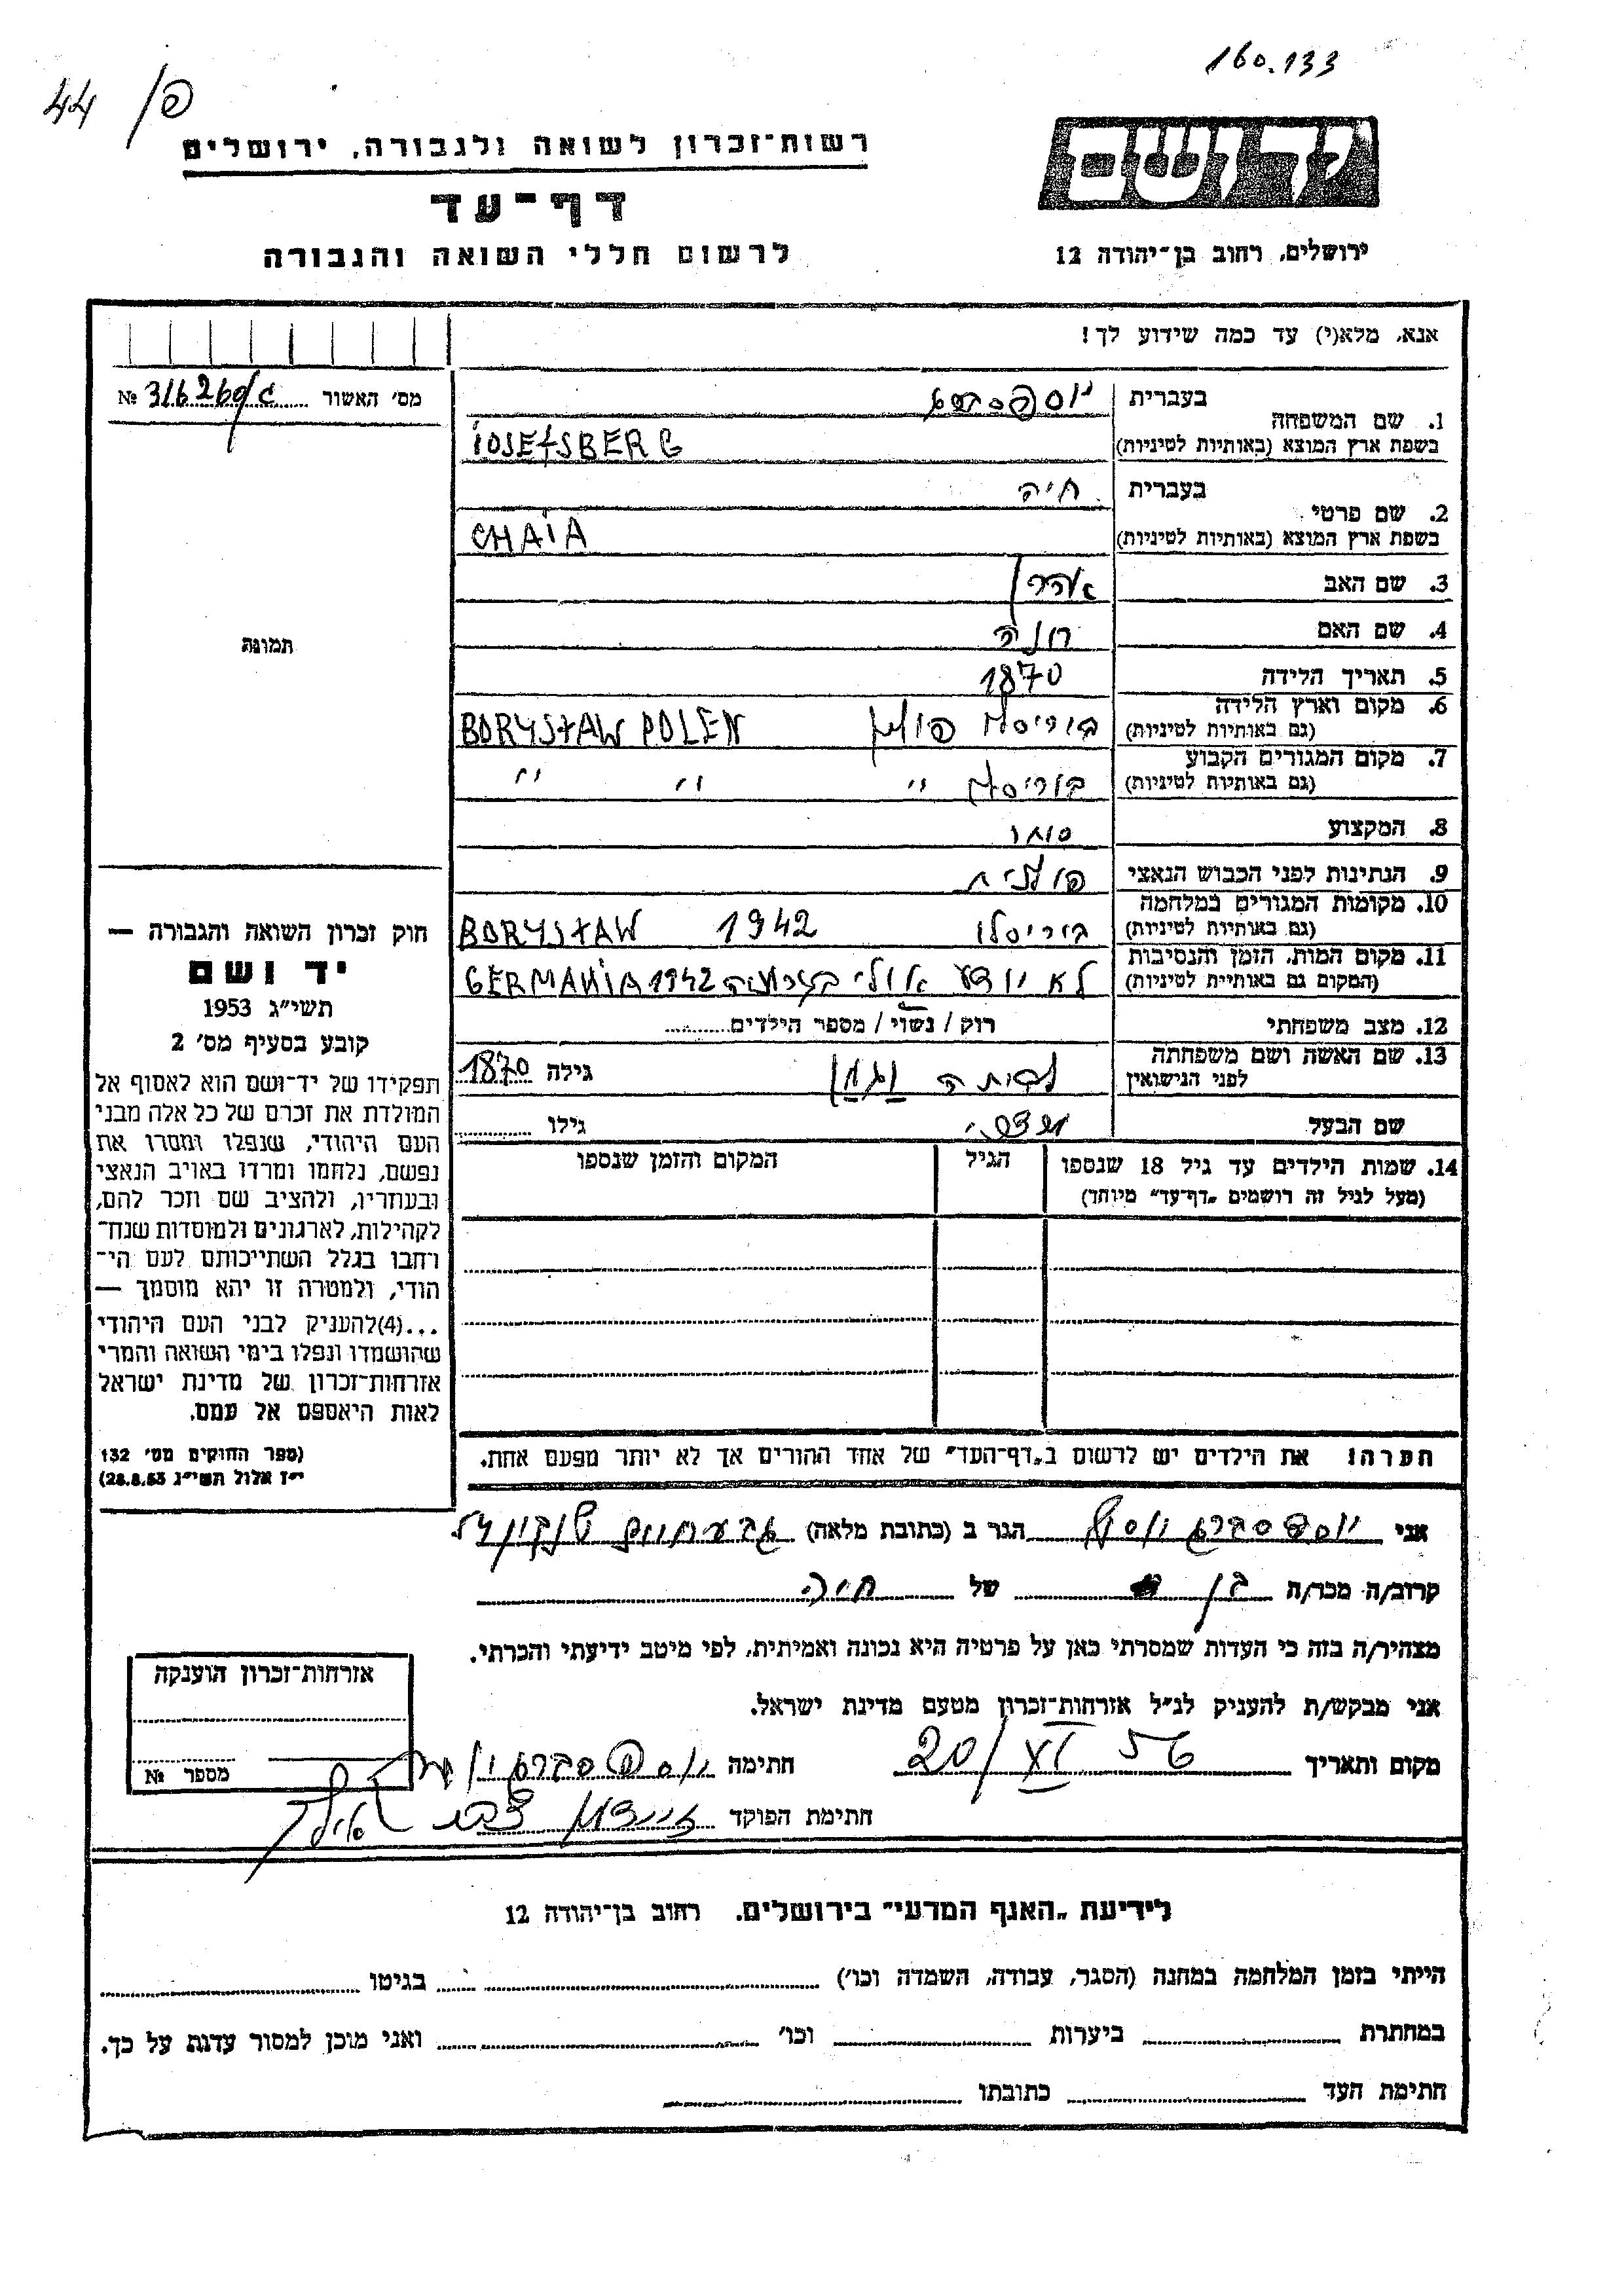 160.133
44 / פ
רשות־זכרון לשואה ולגבורה, ירושלים
ידושם
דף־עד
לרשום חללי השואה והגבורה
ירושלים, רחוב בן־יהודה 12
אנא, מלא(י) עד כמה שידוע לך!
מס׳ האשור 316260/c №
1. שם המשפחה
בעברית יוספסברג
בשפת ארץ המוצא (באותיות לטיניות) IOSEFSBERG
2. שם פרטי
בעברית חיה
בשפת ארץ המוצא (באותיות לטיניות) CHAIA
3. שם האב אהרן
4. שם האם חנה
תמונה
5. תאריך הלידה 1870
6. מקום וארץ הלידה
(גם באותיות לטיניות) בוריסלוו פולין BORYSŁAW POLEN
7. מקום המגורים הקבוע
(גם באותיות לטיניות) בוריסלוו " " "
8. המקצוע סוחר
9. הנתינות לפני הכבוש הנאצי פולנית
10. מקומות המגורים במלחמה
(גם באותיות לטיניות) בוריסלו 1942 BORYSŁAW
11. מקום המות, הזמן והנסיבות
(המקום גם באותיית לטיניות) לא יודע אולי בגרמניה GERMANIA 1942
12. מצב משפחתי רוק / נשוי / מספר הילדים
13. שם האשה ושם משפחתה
לפני הנישואין
גילה 1870
שם הבעל
גילו
14. שמות הילדים עד גיל 18 שנספו
(מעל לגיל זה רושמים „דף־עד” מיוחד)
הגיל
המקום והזמן שנספו
חוק זכרון השואה והגבורה —
יד ושם
תשי״ג 1953
קובע בסעיף מס׳ 2
תפקידו של יד־ושם הוא לאסוף אל
המולדת את זכרם של כל אלה מבני
העם היהודי, שנפלו ומסרו את
נפשם, נלחמו ומרדו באויב הנאצי
ובעוזריו, ולהציב שם וזכר להם,
לקהילות, לארגונים ולמוסדות שנח־
רחבו בגלל השתייכותם לעם הי־
הודי, ולמטרה זו יהא מוסמך —
...(4)להעניק לבני העם היהודי
שהושמדו ונפלו בימי השואה והמרי
אזרחות־זכרון של מדינת ישראל
לאות היאספם אל עמם.
(ספר החוקים מס׳ 132
י״ז אלול תשי״ג 28.8.53)
חערה! את הילדים יש לרשום ב„דף־העד” של אחד ההורים אך לא יותר מפעם אחת.
אני יוספסברג יוסף הגר ב (כתובת מלאה) גבעתיים 54
קרוב/ה מכר/ה בן של חיה
מצהיר/ה בזה כי העדות שמסרתי כאן על פרטיה היא נכונה ואמיתית, לפי מיטב ידיעתי והכרתי.
אני מבקש/ת להעניק לנ״ל אזרחות־זכרון מטעם מדינת ישראל.
מקום ותאריך 20/XI 56 חתימה יוספסברג
חתימת הפוקד
אזרחות־זכרון הוענקה
מספר №
לידיעת „האנף המדעי” בירושלים. רחוב בן־יהודה 12
הייתי בזמן המלחמה במחנה (הסגר, עבודה, השמדה וכו׳) בגיטו
במחתרת ביערות וכו׳ ואני מוכן למסור עדות על כך.
חתימת העד כתובתו